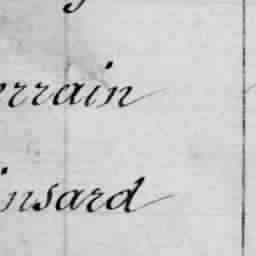 errain
insard